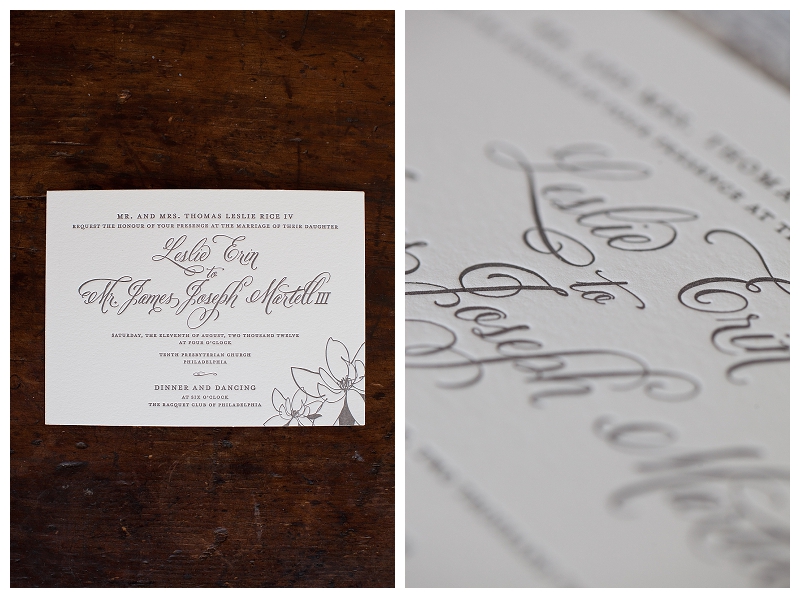 MR. AND MRS. THOMAS LESLIE RICE IV
REQUEST THE HONOUR OF YOUR PRESENCE AT THE MARRIAGE OF THEIR DAUGHTER
Leslie Erin
to
Mr. James Joseph Martell III
SATURDAY, THE ELEVENTH OF AUGUST, TWO THOUSAND TWELVE
AT FOUR O'CLOCK
TENTH PRESBYTERIAN CHURCH
PHILADELPHIA
DINNER AND DANCING
AT SIX O'CLOCK
THE RACQUET CLUB OF PHILADELPHIA
AND MRS. THOMA
PRESENCE AT T
Leslie Erin
to
Joseph Martell